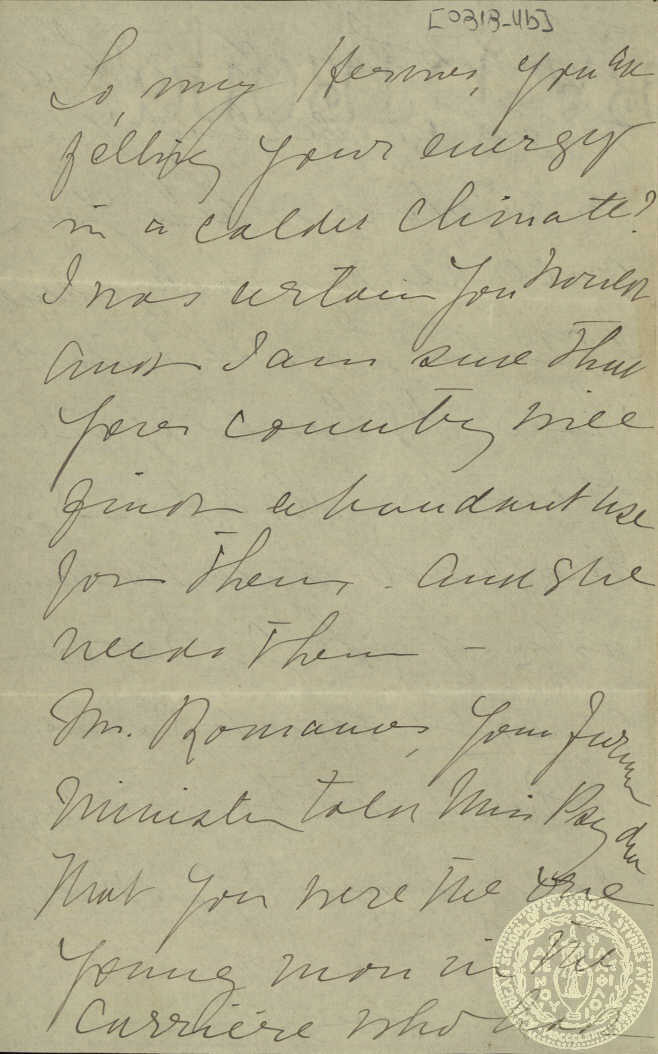 [0313-46]
So, my Hermes, you are
felling your energy
in a colder climate?
I was certain you would
and I am sure that
your country will
find abundant use
for them. And she
needs them –
Mr. Romanos, your former
Minister told Miss
that you were the one
young man in the
Carrière who had
AMERICAN SCHOOL OF CLASSICAL STUDIES AT